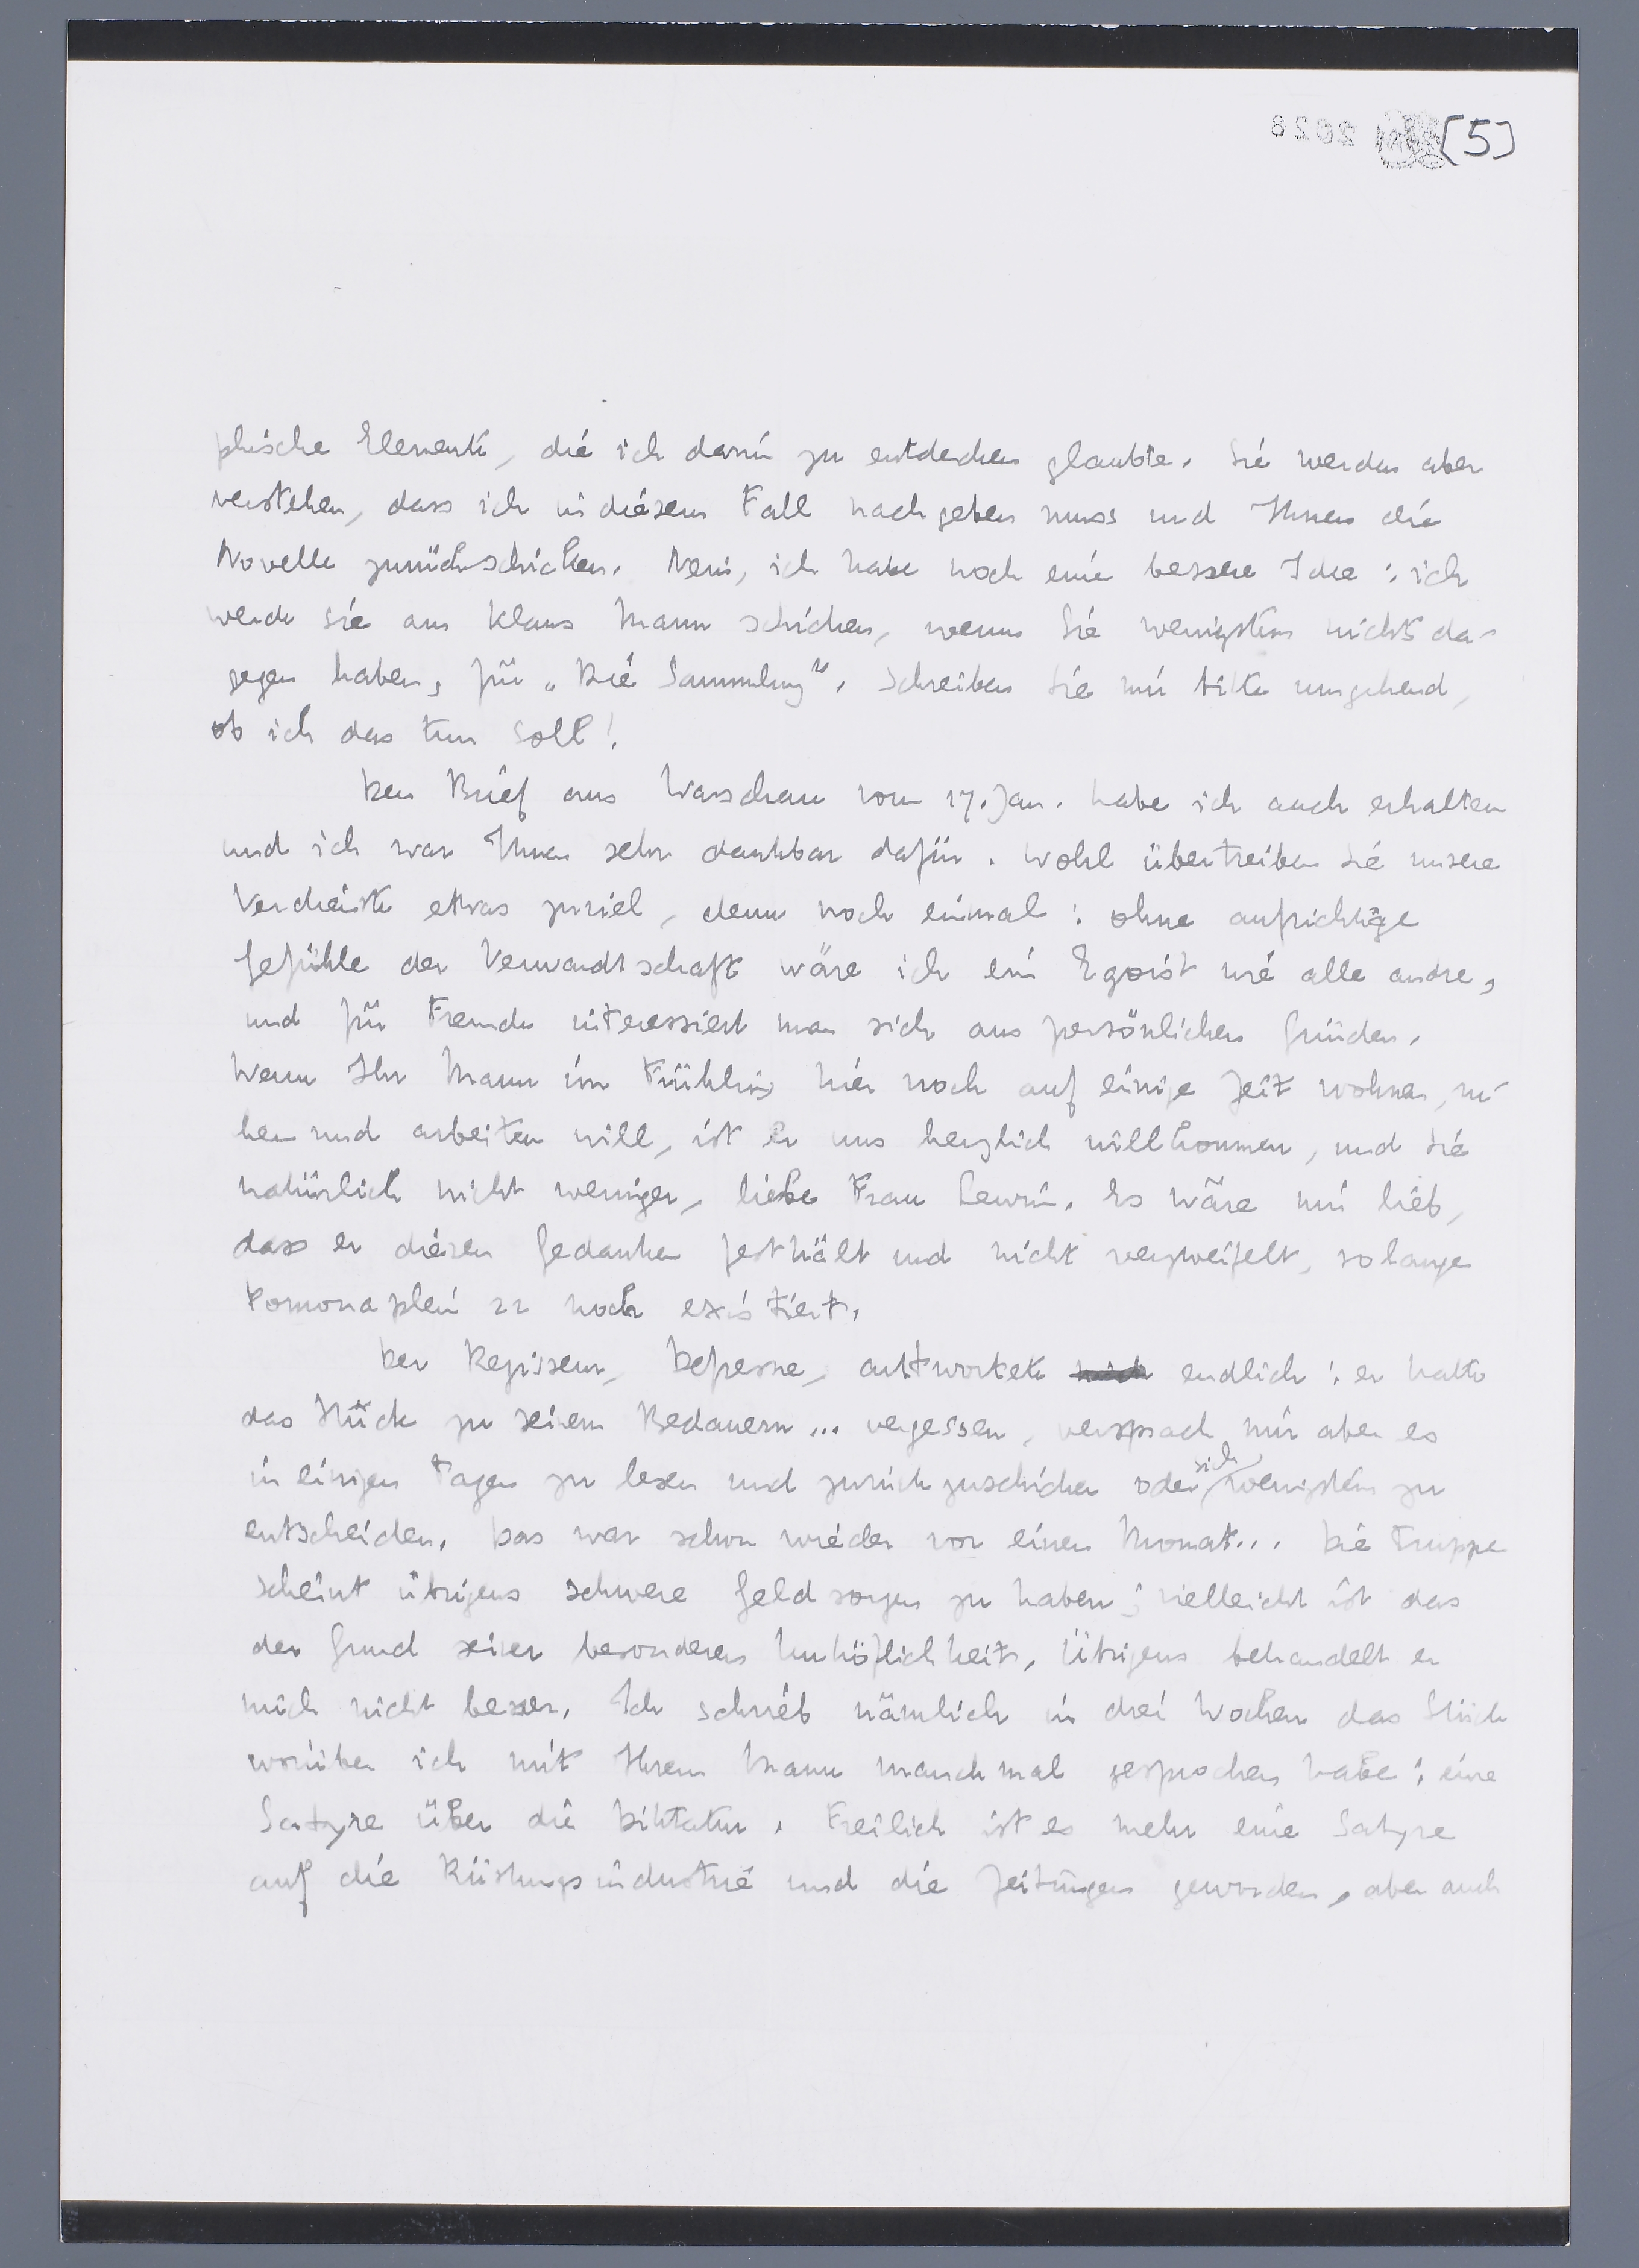 [5]
phische Elemente, die ich darin zu entdecken glaubte. Sie werden aber
verstehen, dass ich in diesem Fall nachgeben muss und Ihnen die
Novelle zurückschicken. Nein, ich habe noch eine bessere Idee: ich
werde sie an Klaus Mann schicken, wenn Sie wenigstens nichts da-
gegen haben, für „Die Sammlung". Schreiben Sie mir bitte umgehend,
ob ich das tun soll!
Den Brief aus Warschau vom 17. Jan. habe ich auch erhalten
und ich war Ihnen sehr dankbar dafür. Wohl übertreiben Sie unsere
Verdienste etwas zuviel, denn noch einmal: ohne aufrichtige
Gefühle der Verwandtschaft wäre ich ein Egoist wie alle andre,
und für Fremde interessiert man sich aus persönlichen Gründen.
Wenn Ihr Mann im Frühling hier noch auf einige Zeit wohnen, ru-
hen und arbeiten will, ist er uns herzlich willkommen, und Sie
natürlich nicht weniger, liebe Frau Lewin. Es wäre mir lieb,
dass er diesen Gedanken festhält und nicht verzweifelt, solange
Pomonaplein 22 noch existiert.
Der Regisseur, Defresne, antwortete endlich: er hatte
das Stück zu seinem Bedauern... vergessen, versprach mir aber es
in einigen Tagen zu lesen und zurückzuschicken oder sich wenigstens zu
entscheiden. Das war schon wieder vor einem Monat... Die Truppe
scheint übrigens schwere Geldsorgen zu haben; vielleicht ist das
der Grund seiner besonderen Unhöflichkeit. Übrigens behandelt er
mich nicht besser. Ich schrieb nämlich in drei Wochen das Stück
worüber ich mit Ihrem Mann manchmal gesprochen habe: eine
Satyre über die Diktatur. Freilich ist es mehr eine Satyre
auf die Rüstungsindustrie und die Zeitungen geworden, aber auch